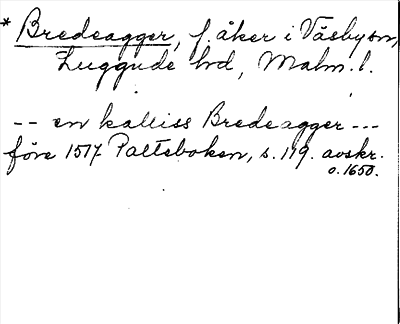 * Bredeagger, f. åker i Väsby sn,
Luggude hd, Malm. l.
-- en kalliss Bredeagger ---
före 1517 Paltsboken, s. 119. avskr.
o. 1650.